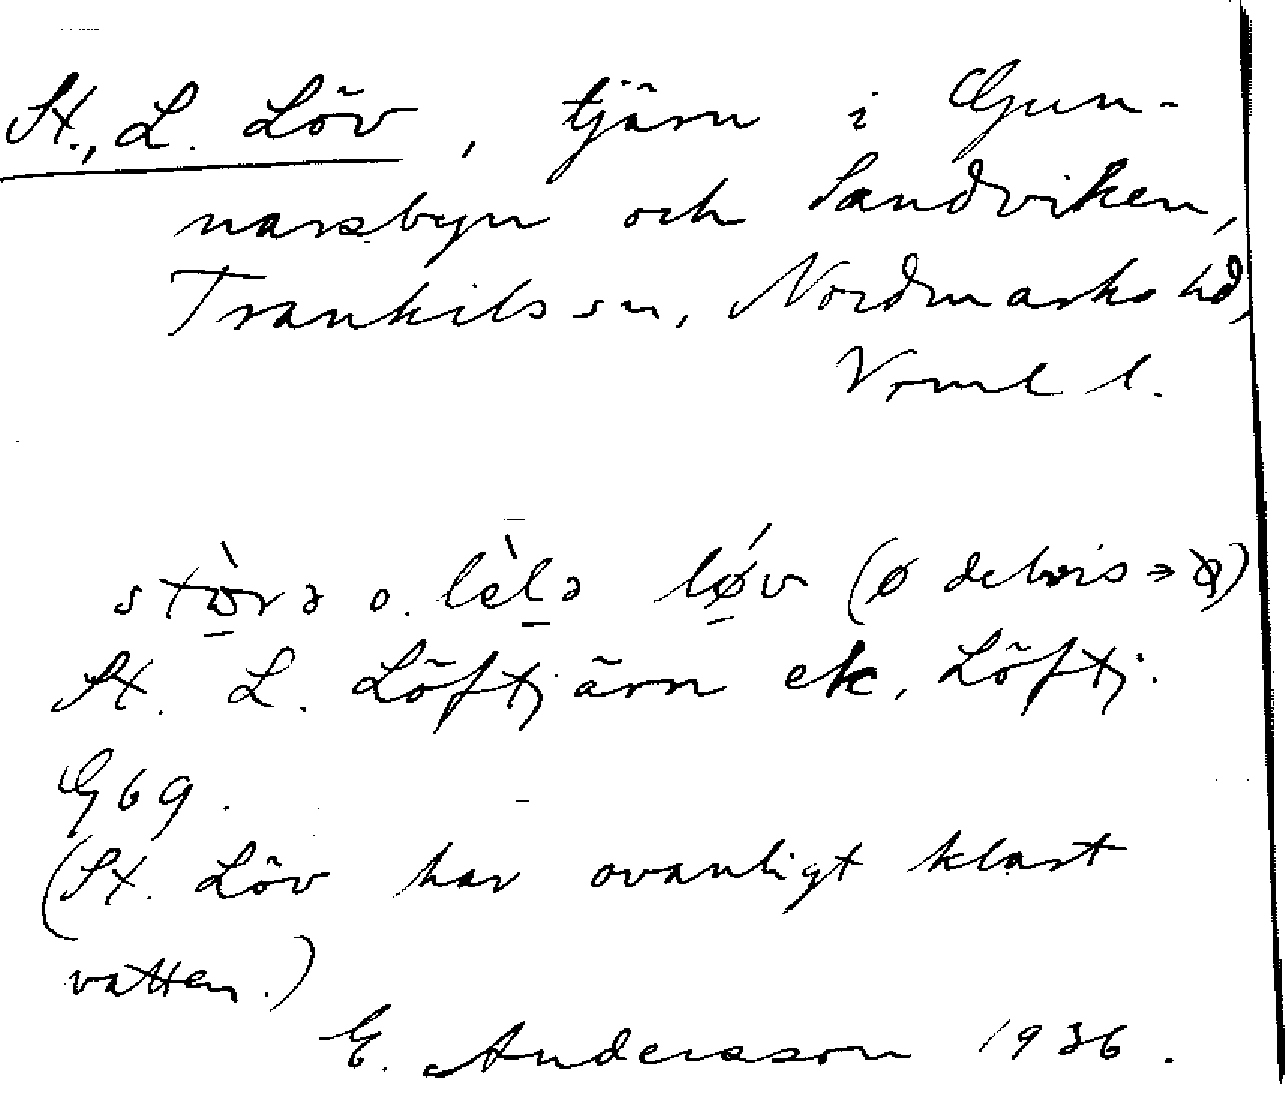 St., L. Löv, tjärn i Gun-
narsbyn och Sandviken,
Trankils sn, Nordmarks hd,
Vrml l.
stò̱rə o. lèḻə lǿ̱v (ø delvis → )
St. L. Löftjärn ek, Löftj.
G69.
(St. Löv har ovanligt klart
vatten.)
E. Andersson 1936.